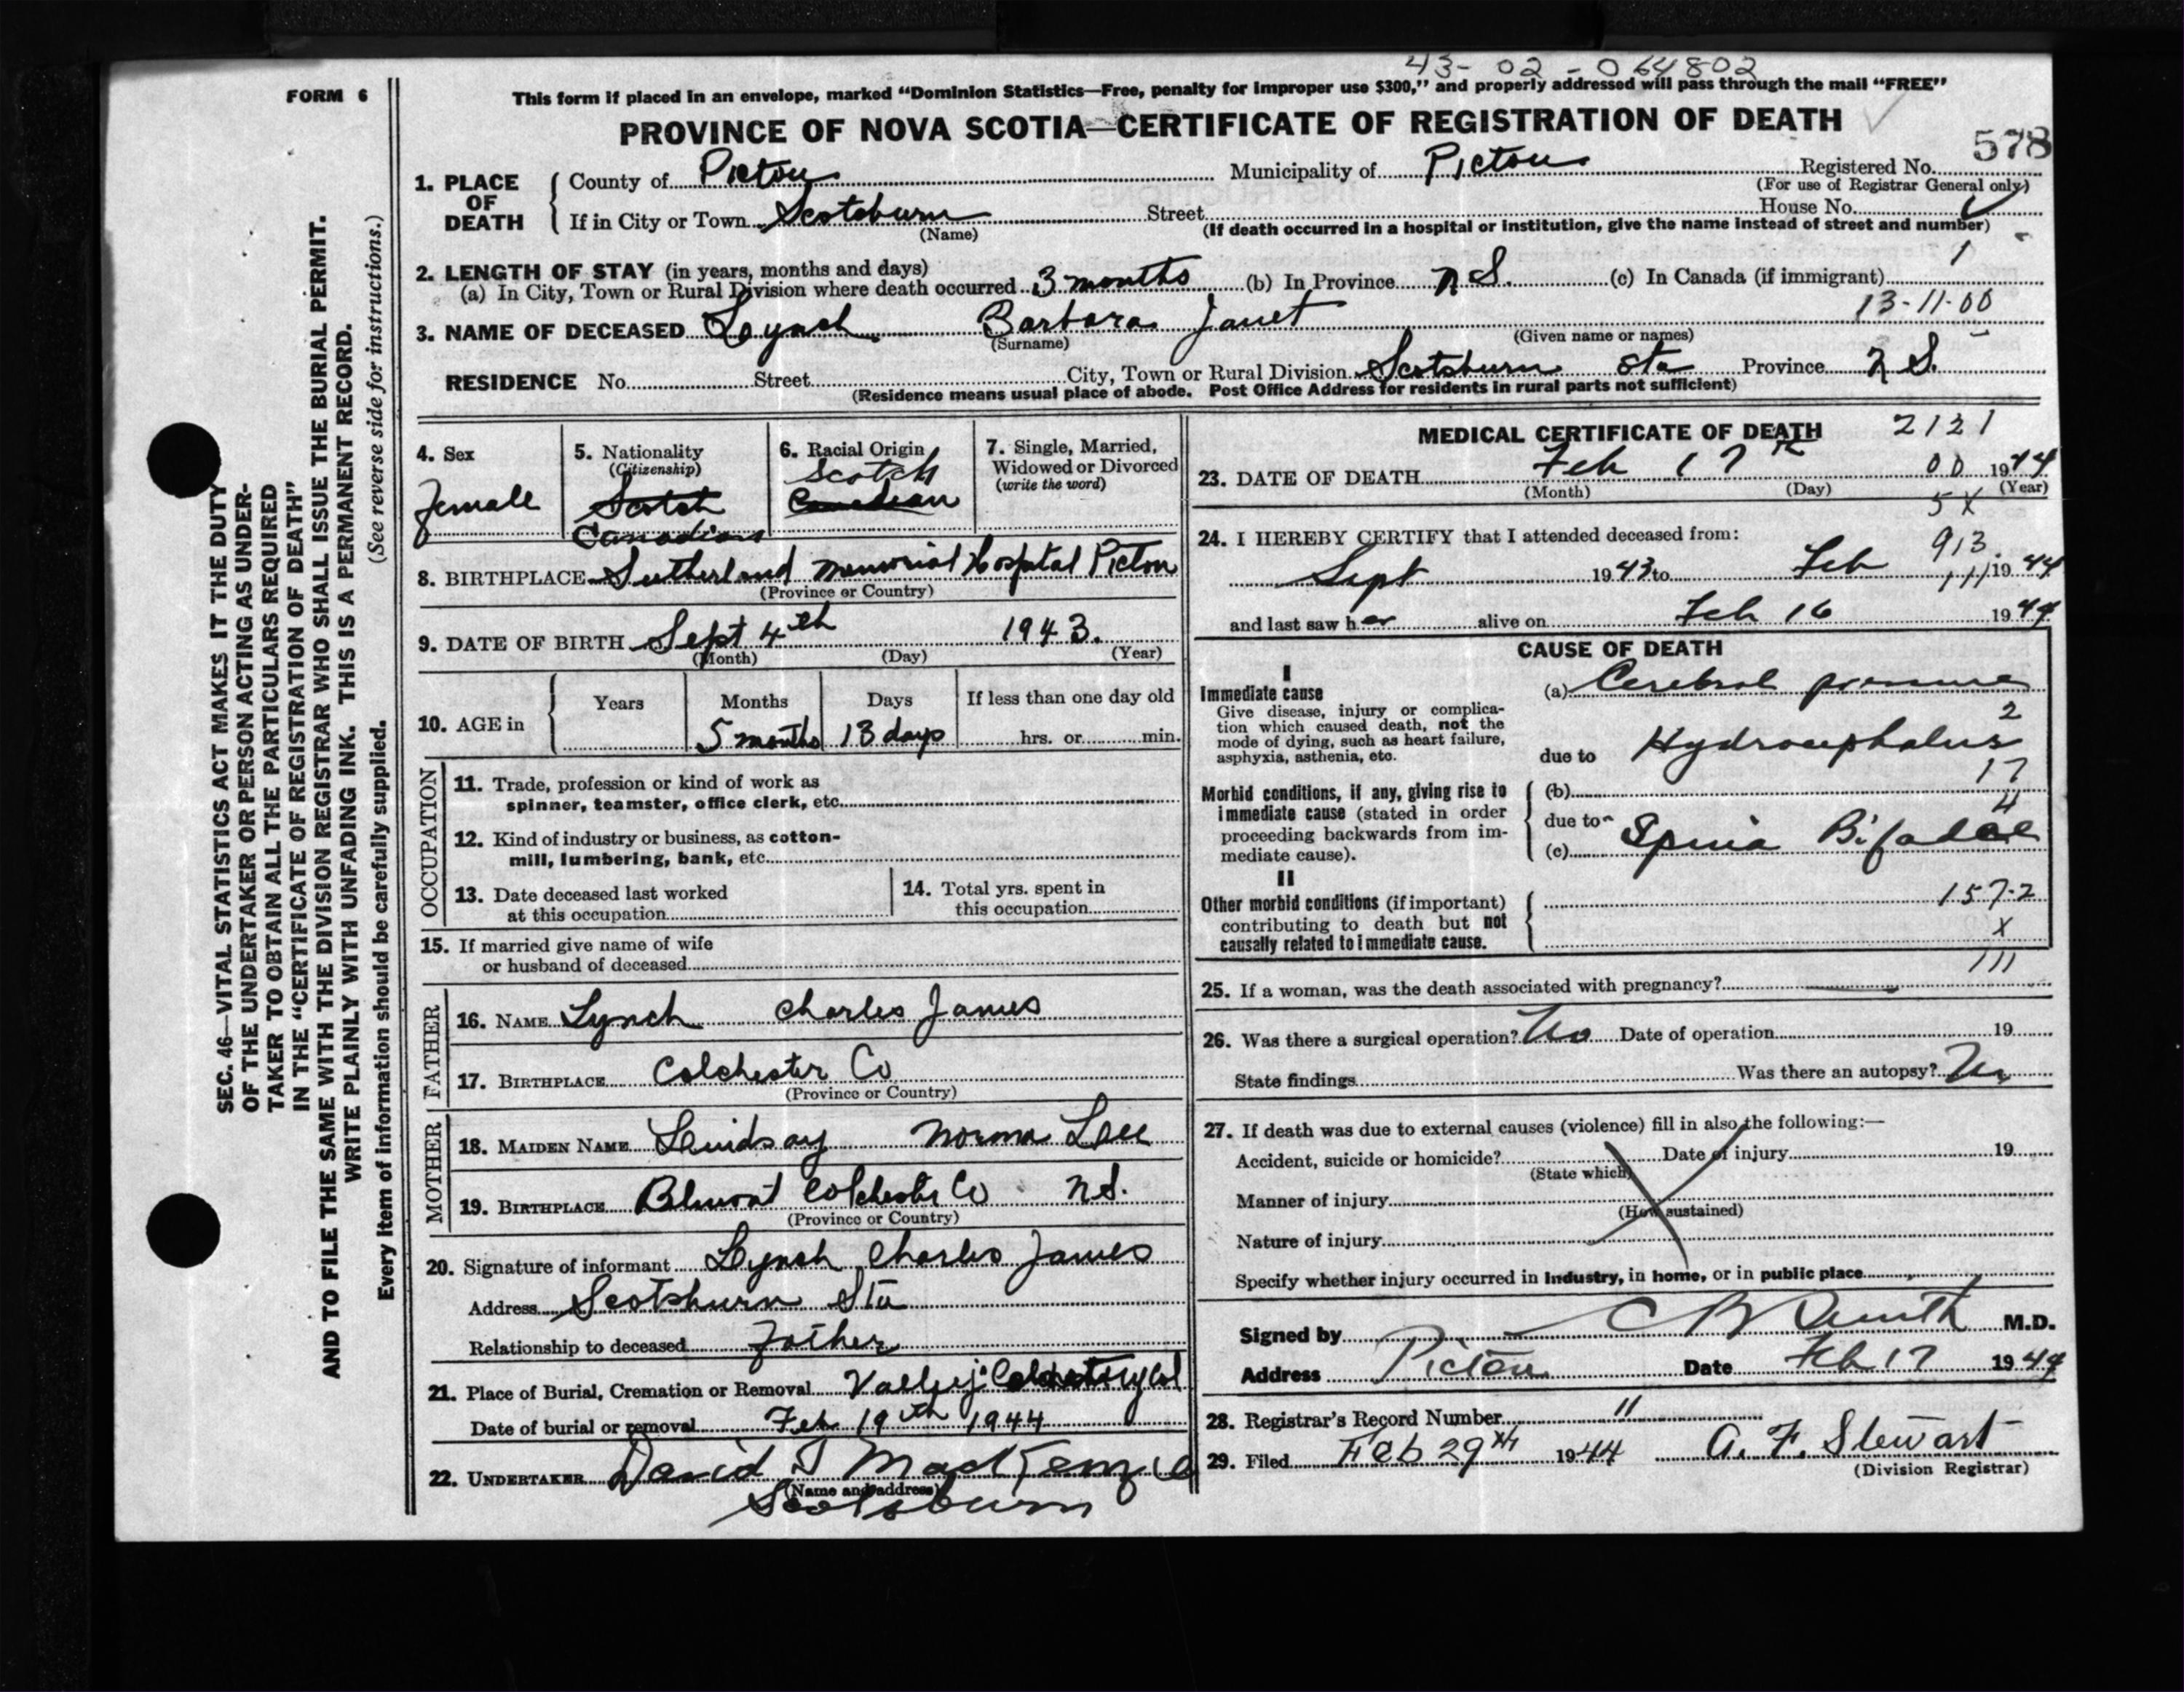 43-02-064802
FORM 6
This form if placed in an envelope, marked "Dominion Statistics—Free, penalty for improper use $300," and properly addressed will pass through the mail "FREE"
PROVINCE OF NOVA SCOTIA—CERTIFICATE OF REGISTRATION OF DEATH
578
1. PLACE OF DEATH
County of Pictou Municipality of Pictou Registered No.
(For use of Registrar General only)
If in City or Town Scotsburn Street House No.
(Name) (If death occurred in a hospital or institution, give the name instead of street and number)
1
2. LENGTH OF STAY (in years, months and days)
(a) In City, Town or Rural Division where death occurred 3 months (b) In Province N.S. (c) In Canada (if immigrant)
13-11-00
3. NAME OF DECEASED Lynch Barbara Janet
(Surname) (Given name or names)
RESIDENCE No. Street City, Town or Rural Division Scotsburn Sta Province N.S.
(Residence means usual place of abode. Post Office Address for residents in rural parts not sufficient)
4. Sex
Female
5. Nationality
(Citizenship)
Scotch
Canadian
6. Racial Origin
Scotch
Canadian
7. Single, Married, Widowed or Divorced
(write the word)
8. BIRTHPLACE Sutherland Memorial Hospital Pictou
(Province or Country)
9. DATE OF BIRTH Sept 4th 1943.
(Month) (Day) (Year)
10. AGE in
Years Months Days If less than one day old
5 months 13 days hrs. or min.
OCCUPATION
11. Trade, profession or kind of work as
spinner, teamster, office clerk, etc.
12. Kind of industry or business, as cotton-
mill, lumbering, bank, etc.
13. Date deceased last worked
at this occupation
14. Total yrs. spent in
this occupation
15. If married give name of wife
or husband of deceased
FATHER
16. NAME Lynch Charles James
17. BIRTHPLACE Colchester Co
(Province or Country)
MOTHER
18. MAIDEN NAME Lindsay Norma Lee
19. BIRTHPLACE Belmont Colchester Co N.S.
(Province or Country)
20. Signature of informant Lynch Charles James
Address Scotsburn Sta
Relationship to deceased Father
21. Place of Burial, Cremation or Removal Valley
Date of burial or removal Feb 19th 1944
22. UNDERTAKER David MacKenzie
(Name and address)
Scotsburn
MEDICAL CERTIFICATE OF DEATH 2121
23. DATE OF DEATH Feb 17th 00 1944
(Month) (Day) (Year)
5 X
24. I HEREBY CERTIFY that I attended deceased from:
913
Sept 1943 to Feb 111 1944
and last saw her alive on Feb 16 1944
CAUSE OF DEATH
I
Immediate cause
Give disease, injury or complica-
tion which caused death, not the
mode of dying, such as heart failure,
asphyxia, asthenia, etc.
(a) Cerebral pressure
2
due to Hydrocephalus
17
Morbid conditions, if any, giving rise to
immediate cause (stated in order
proceeding backwards from im-
mediate cause).
(b)
4
due to
(c) Spina Bifida
II
Other morbid conditions (if important)
contributing to death but not
causally related to immediate cause.
157-2
X
111
25. If a woman, was the death associated with pregnancy?
26. Was there a surgical operation? No Date of operation 19
State findings Was there an autopsy? No
27. If death was due to external causes (violence) fill in also the following:—
Accident, suicide or homicide? Date of injury 19
(State which)
Manner of injury
(How sustained)
Nature of injury
Specify whether injury occurred in industry, in home, or in public place
Signed by M.D.
Address Pictou Date Feb 17 1944
28. Registrar's Record Number 11
29. Filed Feb 29th 1944 A. F. Stewart
(Division Registrar)
SEC. 46—VITAL STATISTICS ACT MAKES IT THE DUTY
OF THE UNDERTAKER OR PERSON ACTING AS UNDER-
TAKER TO OBTAIN ALL THE PARTICULARS REQUIRED
IN THE "CERTIFICATE OF REGISTRATION OF DEATH"
AND TO FILE THE SAME WITH THE DIVISION REGISTRAR WHO SHALL ISSUE THE BURIAL PERMIT.
WRITE PLAINLY WITH UNFADING INK. THIS IS A PERMANENT RECORD.
Every item of information should be carefully supplied. (See reverse side for instructions.)